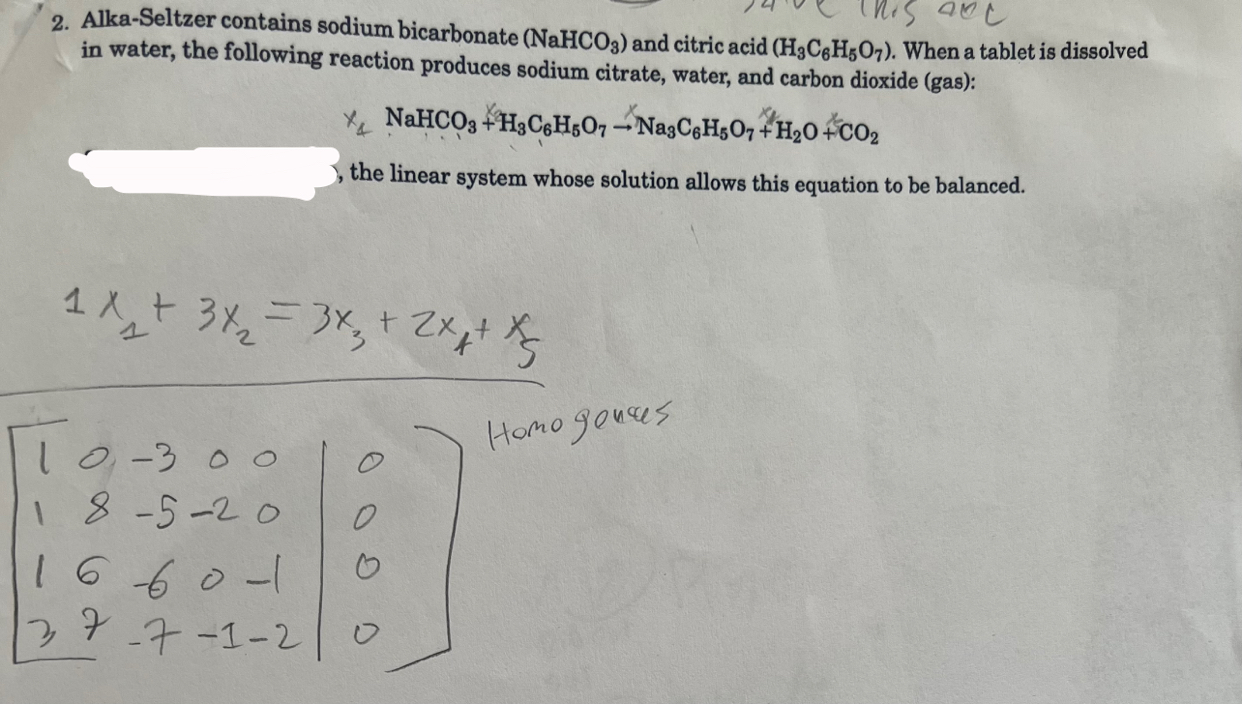 this
2. Alka-Seltzer contains sodium bicarbonate (NaHCO₃) and citric acid (H₃C₆H₅O₇). When a tablet is dissolved
in water, the following reaction produces sodium citrate, water, and carbon dioxide (gas):
x₁ NaHCO₃ + x₂ H₃C₆H₅O₇ → x₃ Na₃C₆H₅O₇ + x₄ H₂O + x₅ CO₂
, the linear system whose solution allows this equation to be balanced.
1x₁ + 3x₂ = 3x₃ + 2x₄ + x₅
Homogonues
1 0 -3 0 0 | 0
1 8 -5 -2 0 | 0
1 6 -6 0 -1 | 0
3 7 -7 -1 -2 | 0